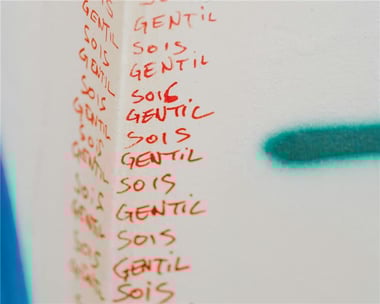 GENTIL
SOIS
GENTIL
SOIS
GENTIL
SOIS
GENTIL
SOIS
GENTIL
SOIS
GENTIL
SOIS
GENTIL
SOIS
GENTIL
SOIS
GENTIL
SOIS
GENTIL
SOIS
GENTIL
SOIS
GENTIL
SOIS
GENTIL